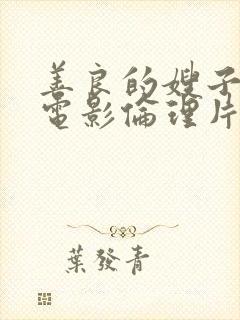 善良的嫂子
電影倫理片
葉發青